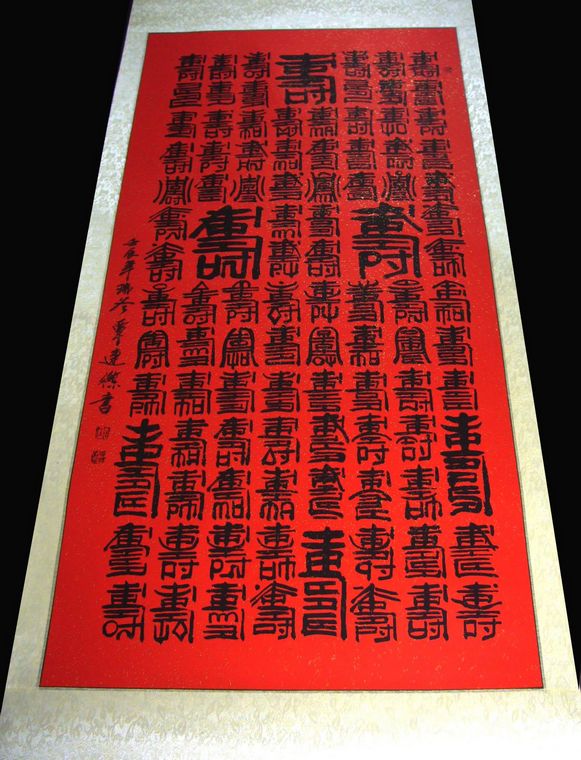 壽壽壽壽壽壽壽
壽壽壽壽壽壽
壽壽壽壽壽壽壽壽
壽壽壽壽壽壽壽壽
壽壽壽壽壽壽壽壽
壽壽壽壽壽壽
壽壽壽壽
壽壽壽壽壽壽壽壽
壽壽壽壽壽壽壽壽
壽壽壽壽壽壽壽壽
壽壽壽壽壽壽壽壽
壽壽壽壽壽壽
壽壽壽壽壽壽壽壽
壽壽壽壽壽壽壽
壬辰年連書